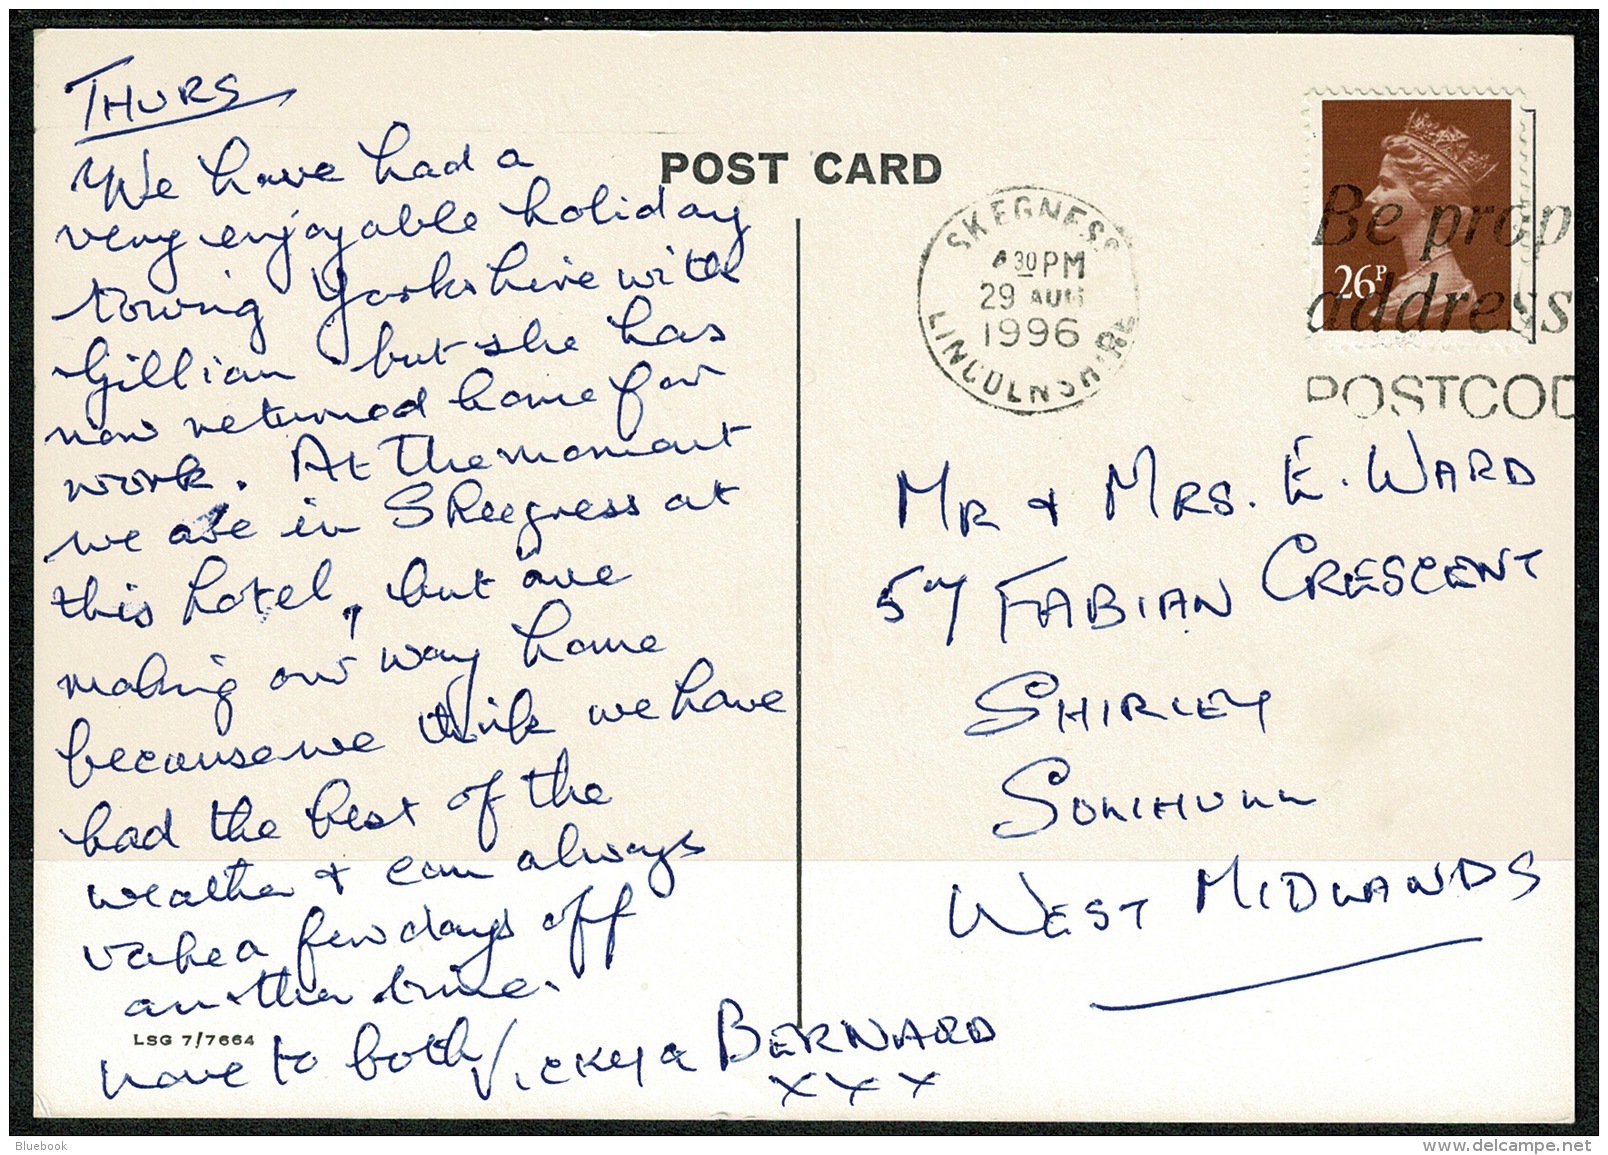 THURS
We have had a
very enjoyable holiday
towing Yorkshire with
Gillian but she has
now returned home for
work. At the moment
we are in Skeegness at
this hotel, but are
making our way home
because we think we have
had the best of the
weather & can always
take a few days off
another time.
Love to both, Vicky & BERNARD
x x x
LSG 7/7664
POST CARD
SKEGNESS
30 PM
29 AUG
1996
LINCOLNSHIRE
26P
Be prop
address
POSTCOD
MR & MRS. E. WARD
57 FABIAN CRESCENT
SHIRLEY
SOLIHULL
WEST MIDLANDS
Bluebook
delcampe.net